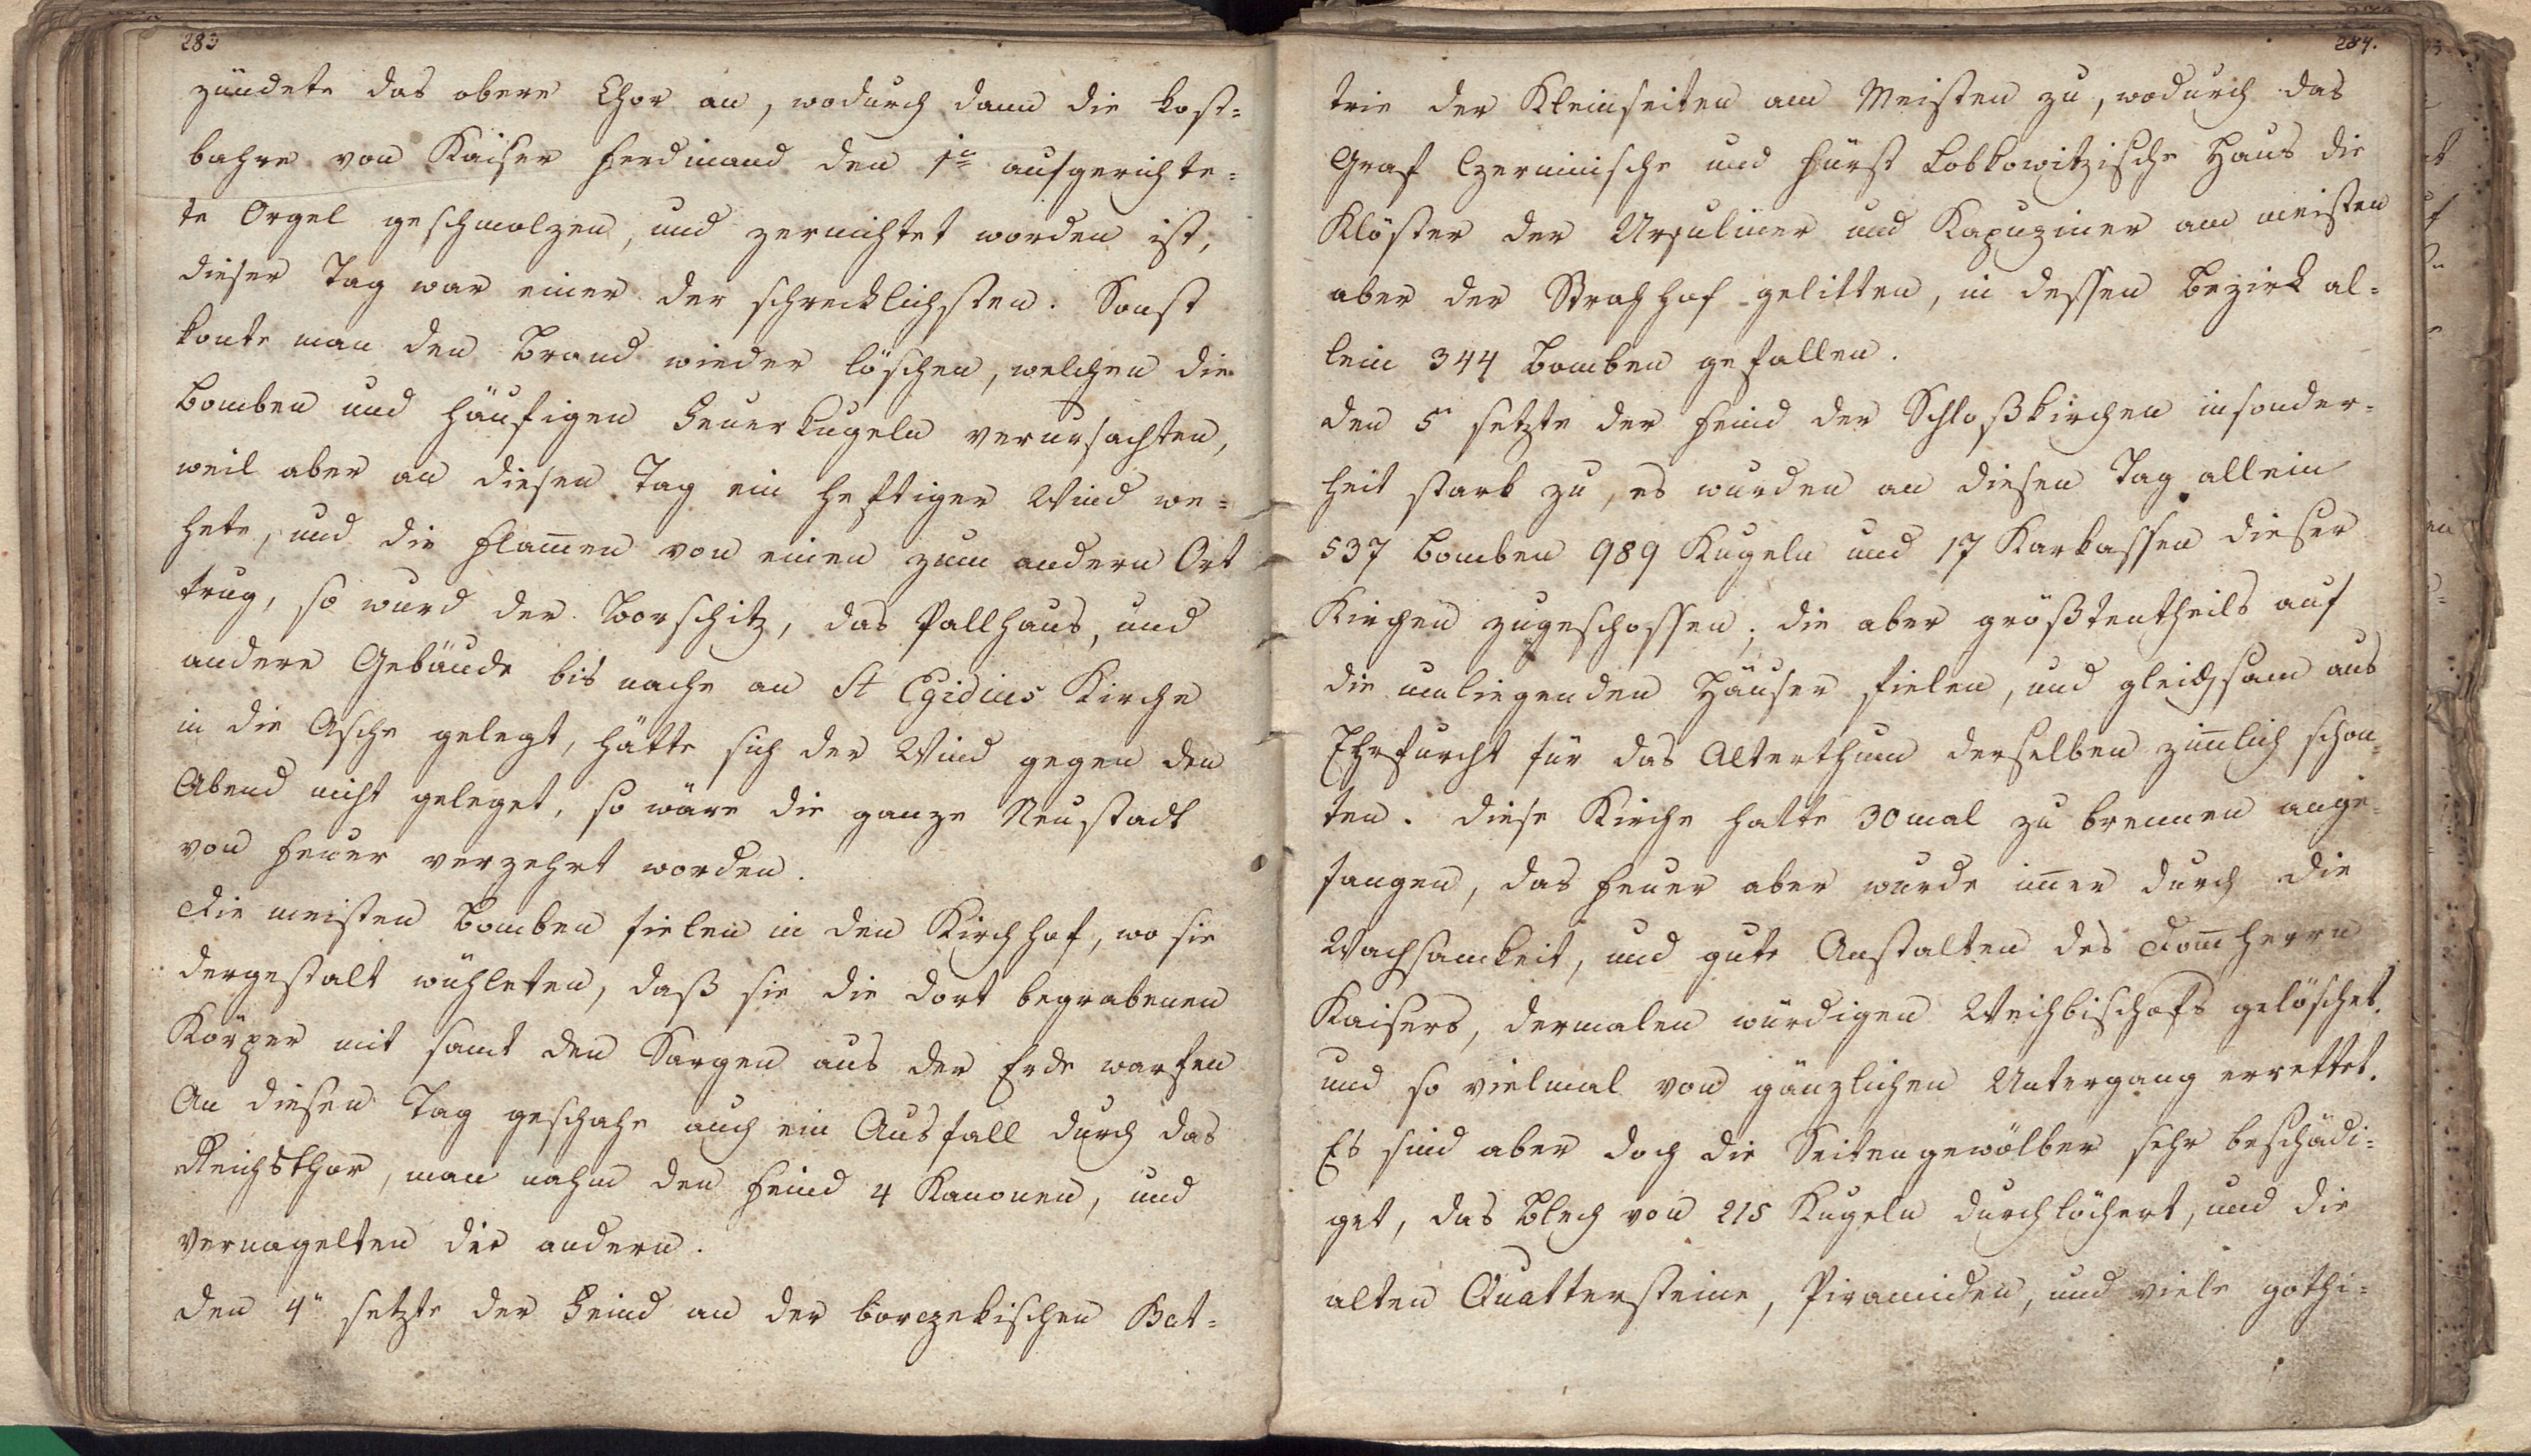 283
zündete das obere Chor an, wodurch dann die kost=
bahre von Kaiser Ferdinand den 1n aufgerichte=
te Orgel geschmolzen, und zernichtet worden ist,
dieser Tag war einer der schrecklichsten. Sonst
konte man den Brand wieder löschen, welchen die
Bomben und häufigen Feuerkugeln verursachten,
weil aber an diesen Tag ein heftiger Wind we=
hete, und die Flam̅en von einen zum andern Ort
trug, so wurd der Borschitz, das Pallhaus, und
andere Gebäude bis nache an St Egidius Kirche
in die Asche gelegt, hätte sich der Wind gegen den
Abend nicht geleget, so wäre die ganze Neustadt
von Feuer verzehrt worden.
Die meisten Bomben fielen in den Kirchhof, wo sie
dergestalt wühleten, daß sie die dort begrabenen
Körper mit samt den Sargen aus der Erde warfen
An diesen Tag geschahe auch ein Ausfall durch das
Reichsthor, man nahm den Feind 4 Kanonen, und
vernagelten die andern.
Den 4" setzte der Feind an der borczekischen Bat=
284.
trie der Kleinseiten am Meisten zu, wodurch das
Graf Czerninische und Fürst Lobkowitzische Haus die
Klöster der Ursuliner und Kapuziner am meisten
aber der Strahhof gelitten, in dessen Bezirk al=
lein 344 Bomben gefallen.
den 5 setzte der Feind der Schloßkirchen insonder=
heit stark zu, es wurden an diesen Tag allein
537 Bomben 989 Kugeln und 17 Karkassen dieser
Kirchen zugeschossen; die aber größtentheils auf
die umliegenden Häuser fielen, und gleichsam aus
Ehrfurcht für das Alterthum derselben zim̅lich schon=
ten. Diese Kirche hatte 30mal zu brennen ange=
fangen, das Feuer aber wurde im̅er durch die
Wachsamkeit, und gute Anstalten des Dom̅herrn
Kaisers, dermalen würdigen Weihbischofs gelöschet.
und so vielmal von gänzlichen Untergang errettet.
Es sind aber doch die Seitengewölber sehr beschädi=
get, das Blech von 215 Kugeln durchlöchert, und die
alten Quattersteine, Piramiden, und viele gothi=